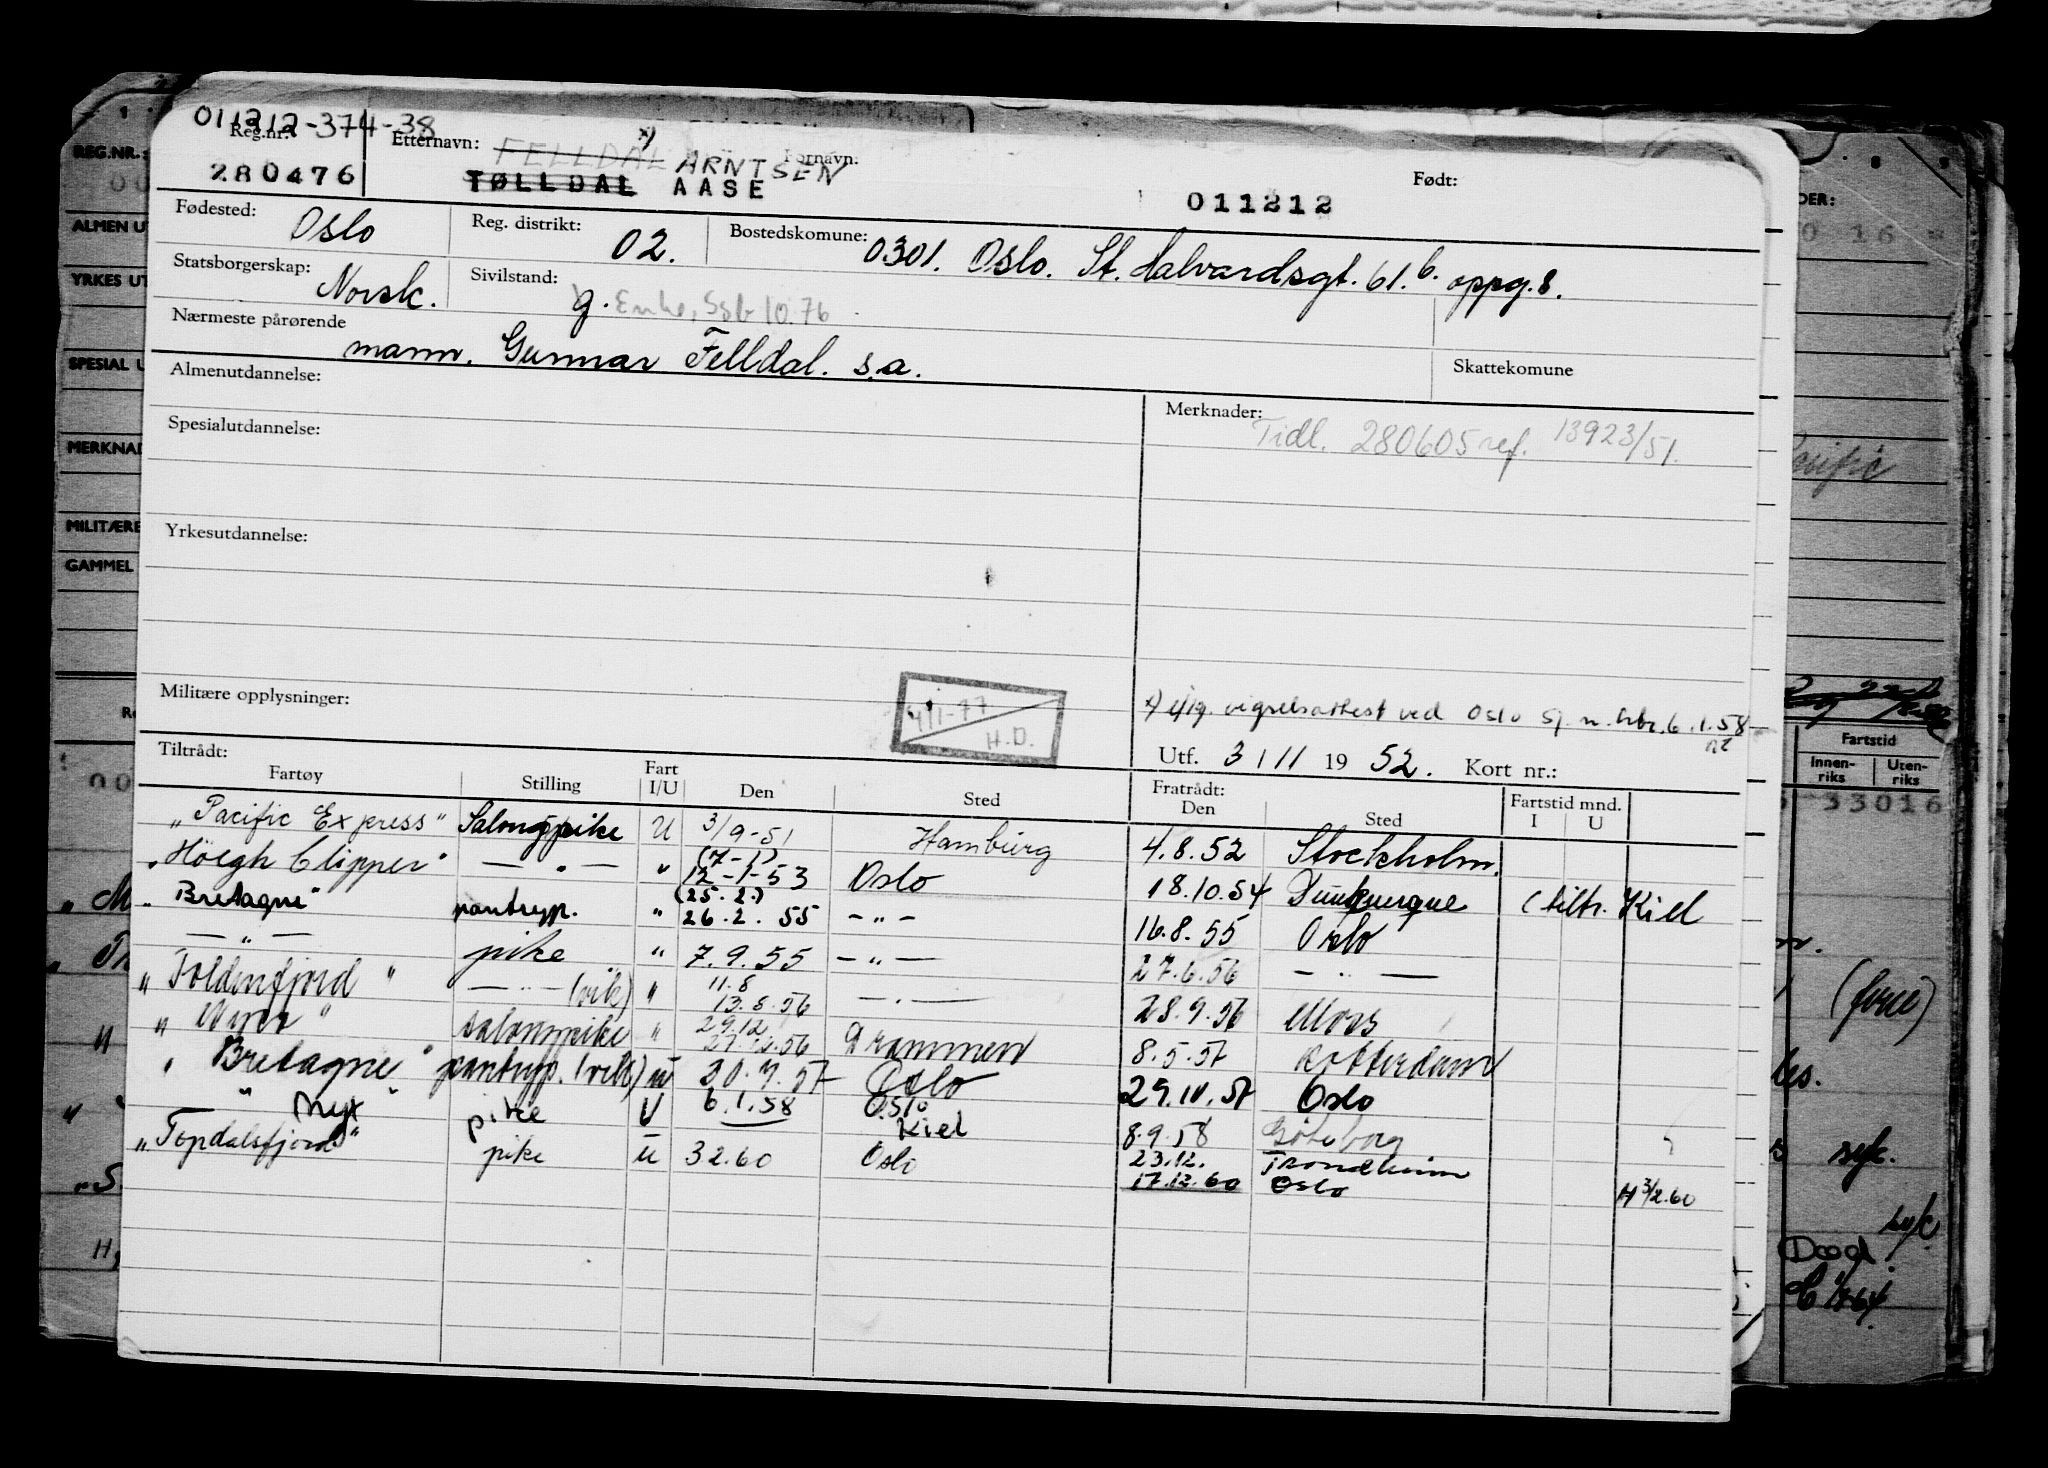 011212-374-38
Reg.nr.: Etternavn: FELLDAL x) ARNTSEN Fornavn: Født:
280476 TØLLDAL AASE 011212
Fødested: Oslo Reg. distrikt: 02. Bostedskomune: 0301. Oslo. St. Halvardsgt. 61.b. oppg. 8.
Statsborgerskap: Norsk. Sivilstand: g. Enke, 10.76
Nærmeste pårørende mann. Gunnar Felldal. s.a.
Skattekomune
Almenutdannelse:
Merknader: Tidl. 280605 ref. 13923/51.
Spesialutdannelse:
Yrkesutdannelse:
Militære opplysninger:
4/1-77 H.D.
x) iflg. vigselsattest ved Oslo 6.1.58
Utf. 3/11 1952. Kort nr.:
Tiltrådt: Fratrådt:
Fartøy Stilling Fart I/U Den Sted Den Sted Fartstid mnd. I U
"Pacific Express" Salongpike U 3/9-51 Hamburg 4.8.52 Stockholm.
"Höegh Clipper" — " — " (7-1) 12-1-53 Oslo 18.10.54 Dunkuerque (tiltr. Kiel
"Bretagne" pantryp. " (25.2.) 26.2.55 - " - 16.8.55 Oslo
— " — pike " 7.9.55 - " - 27.6.56 — " —
"Foldenfjord" — " — (vik) " 11.8 13.8.56 — " — 28.9.56 Moss
" " salongpike " 29.12 .56 Drammen 8.5.57 Rotterdam
"Bretagne" pantryp. (vik) u 20.7.57 Oslo 29.10.57 Oslo
" Nyx " pike U 6.1.58 Oslo Kiel 8.9.58 Göteborg
"Topdalsfjord" pike u 3 2.60 Oslo 23.12. Trondheim
17.12.60 Oslo H 3/2.60
REG.NR.:
ALMEN UT
YRKES UT
SPESIAL U
MERKNAD
MILITÆRE
GAMMEL
DER:
0 16
Pacific
Fartstid
Innen-riks Uten-riks
33016
(force)
syk.
syk
Død